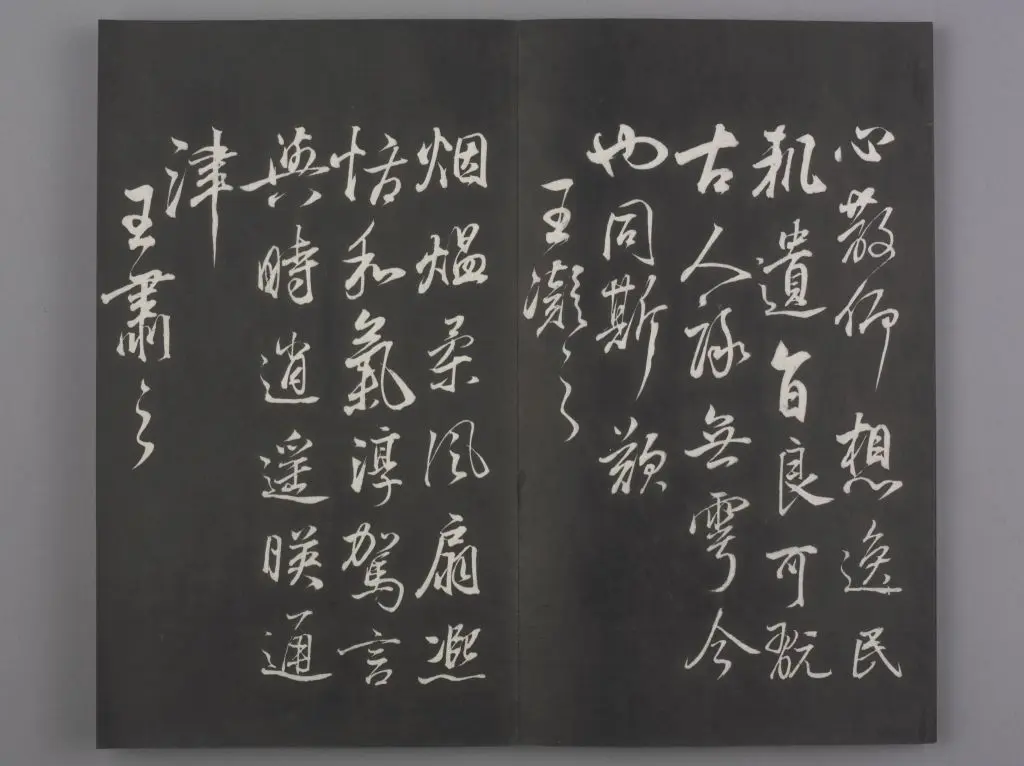 心散仰想逸民
軌遺音良可翫
古人詠無雩今
也同斯歎
王凝之
烟熅柔風扇熙
怡和氣淳駕言
興時逍遥暎通
津
王肅之